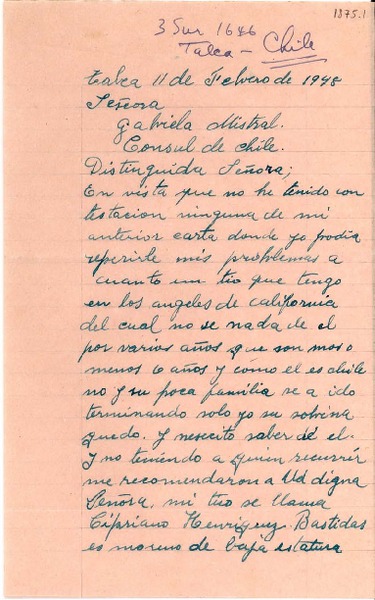 1375.1
3 Sur 1646
Talca - Chile
Talca 11 de Febrero de 1948
Señora
Gabriela Mistral.
Consul de Chile.
Distinguida Señora;
En vista que no he tenido con
testacion ninguna de mi
anterior carta donde yo podia
referirle mis problemas a
cuanto un tio que tengo
en los angeles de california
del cual no se nada de el
por varios años que son mas o
menos 6 años y como el es chile
no y su poca familia se a ido
terminando solo yo su sobrina
quedo. y nescito saber de el.
y no teniendo a quien recurrir
me recomendaron a Ud digna
Señora, mi tio se llama
Cipriano Henriquez Bastidas
es moreno de baja estatura